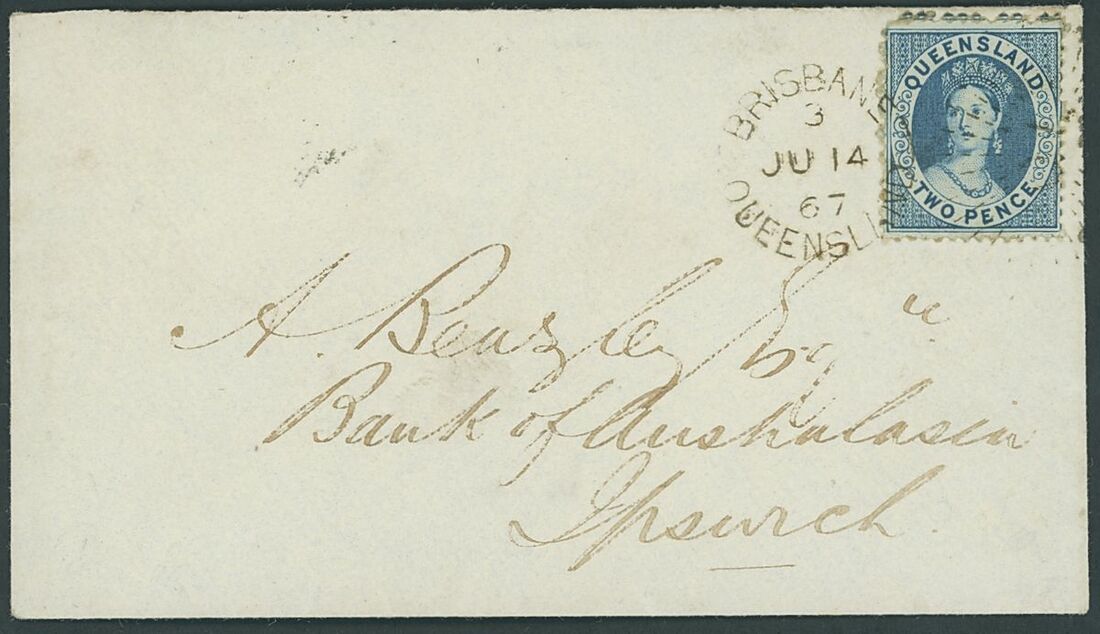 BRISBANE
3
JU 14
67
QUEENSLAND
QUEENSLAND
TWO PENCE
A. Beazley Esq
Bank of Australasia
Ipswich